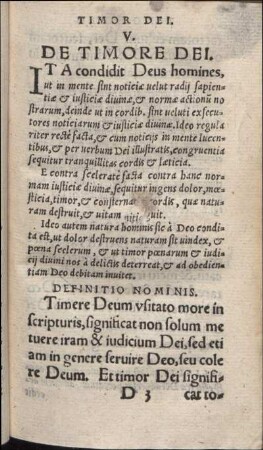 TIMOR DEI.
V.
DE TIMORE DEI.
ITA condidit Deus homines,
ut in mente sint noticiæ uelut radij sapien-
tiæ & iusticiæ diuinæ, & normæ actionũ no
strarum, deinde ut in cordib. sint ueluti execu-
tores noticiarum & iusticiæ diuinæ. Ideo regula
riter rectè facta, & cum noticijs in mente lucen-
tibus, & per uerbum Dei illustratis, congruentia
sequitur tranquillitas cordis & læticia.
E contra sceleratè facta contra hanc nor-
mam iusticiæ diuinæ, sequitur ingens dolor, mœ-
sticia, timor, & consternatio cordis, quæ natu-
ram destruit, & uitam
Ideo autem natura hominis sic à Deo condi-
ta est, ut dolor destruens naturam sit uindex, &
pœna scelerum, & ut timor pœnarum & iudi-
cij diuini nos à delictis deterreat, & ad obedien-
tiam Deo debitam inuitet.
DEFINITIO NOMINIS.
Timere Deum vsitato more in
scripturis, significat non solum me
tuere iram & iudicium Dei, sed eti
am in genere seruire Deo, seu cole
re Deum. Et timor Dei signifi-
D 3 cat to-